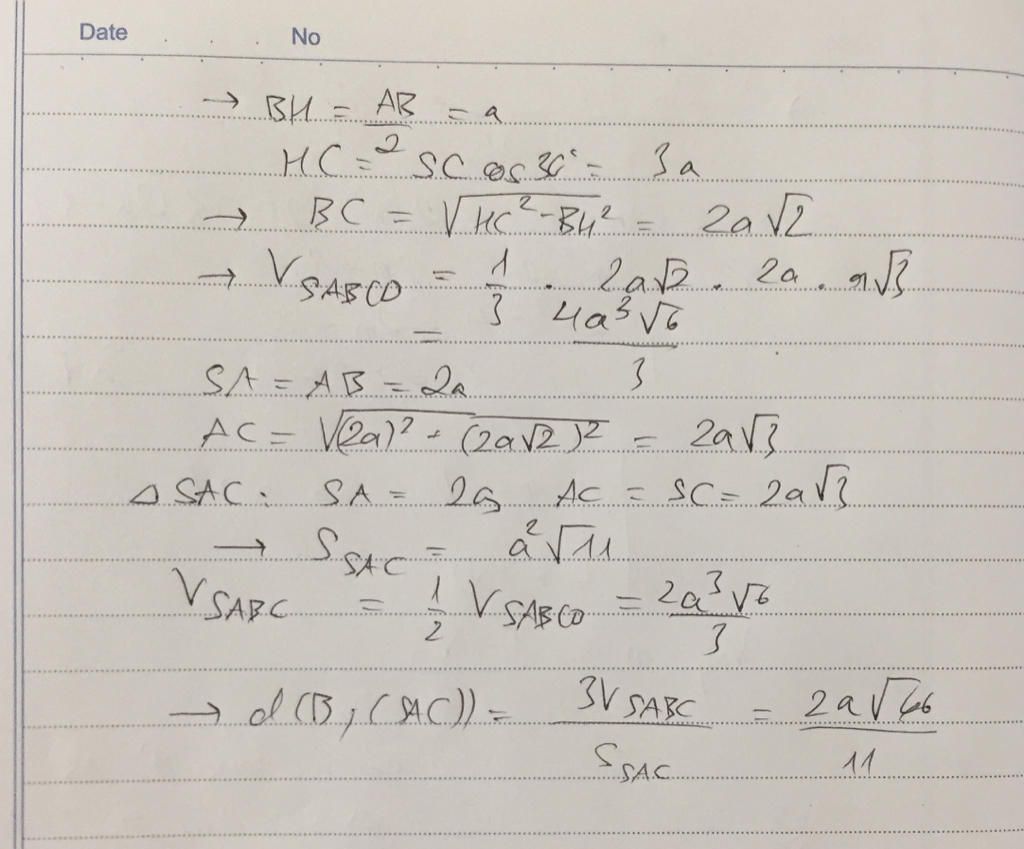 Date . . . No
→ BH = AB/2 = a
HC = SC cos 30° = 3a
→ BC = √(HC² - BH²) = 2a√2
→ V_SABCD = 1/3 . 2a√2 . 2a . a√3
= 4a³√6/3
SA = AB = 2a
AC = √((2a)² + (2a√2)²) = 2a√3
△ SAC: SA = 2a, AC = SC = 2a√3
→ S_SAC = a²√11
V_SABC = 1/2 V_SABCD = 2a³√6/3
→ d(B; (SAC)) = 3V_SABC/S_SAC = 2a√66/11